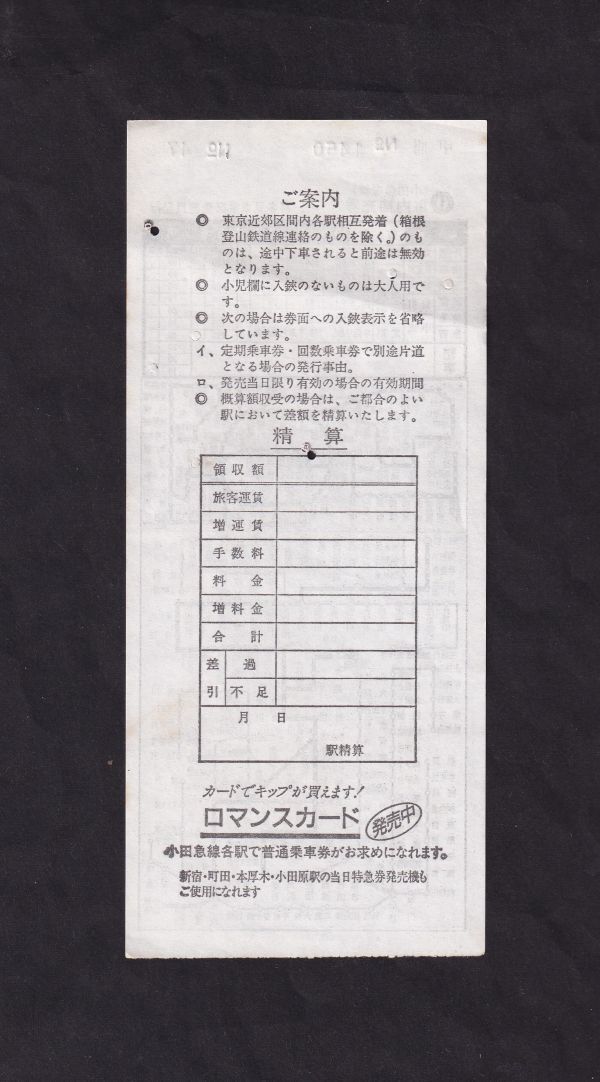 ご案内
◎ 東京近郊区間内各駅相互発着（箱根
登山鉄道線連絡のものを除く。）のも
のは、途中下車されると前途は無効
となります。
◎ 小児欄に入鋏のないものは大人用で
す。
◎ 次の場合は券面への入鋏表示を省略
しています。
イ、定期乗車券・回数乗車券で別途片道
となる場合の発行事由。
ロ、発売当日限り有効の場合の有効期間
◎ 概算額収受の場合は、ご都合のよい
駅において差額を精算いたします。
精算
領収額
旅客運賃
増運賃
手数料
料金
増料金
合計
差引 過
不足
月 日
駅精算
カードでキップが買えます!
ロマンスカード 発売中
小田急線各駅で普通乗車券がお求めになれます。
新宿・町田・本厚木・小田原駅の当日特急券発売機も
ご使用になれます